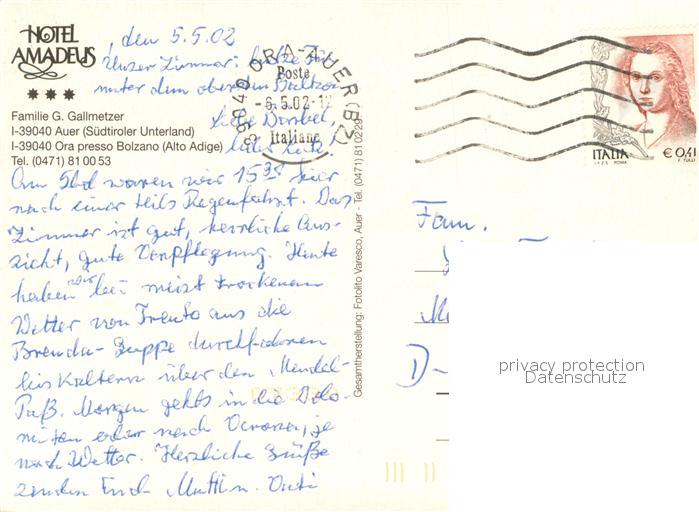 HOTEL
AMADEUS
Familie G. Gallmetzer
I-39040 Auer (Südtiroler Unterland)
I-39040 Ora presso Bolzano (Alto Adige)
Tel. (0471) 81 00 53
, den 5.5.02
Unser Zimmer:
unter dem oberen Balkon
Liebe
Am Sbd waren wir 15³⁵ hier
nach einer teils Regenfahrt. Das
Zimmer ist gut, herrliche Aus-
sicht, gute Verpflegung. Heute
haben wir bei meist trockenem
Wetter von Trento aus die
Brenta-Gruppe durchfahren
bis Kaltern über den Mendel-
Paß. Morgen gehts in die Dolo-
miten oder nach Verona, je
nach Wetter. Herzliche Grüße
senden Euch Mutti u. Vati
Gesamtherstellung: Fotolito Varesco, Auer - Tel. (0471) 81 02 29
39040 ORA-AUER (BZ)
Poste
-6.5.02-12
Italiane
ITALIA
€ 0,41
I.P.Z.S. ROMA
F. TULLI
Fam.
D-
privacy protection
Datenschutz